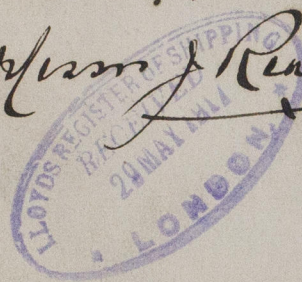 J Rea
LLOYDS REGISTER OF SHIPPING
RECEIVED
29 MAY 1917
LONDON